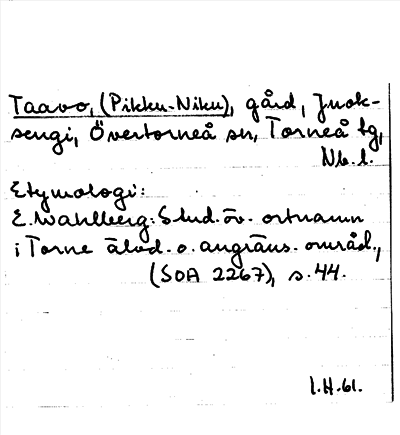 Taavo, (Pikku-Niku), gård, Juok-
sengi, Övertorneå sn, Torneå tg,
Nb. l.
Etymologi:
E. Wahlberg: Stud. öv. ortnamn
i Torne älvd. o. angräns. områd.,
(SOA 2267), s. 44.
I.H. 61.